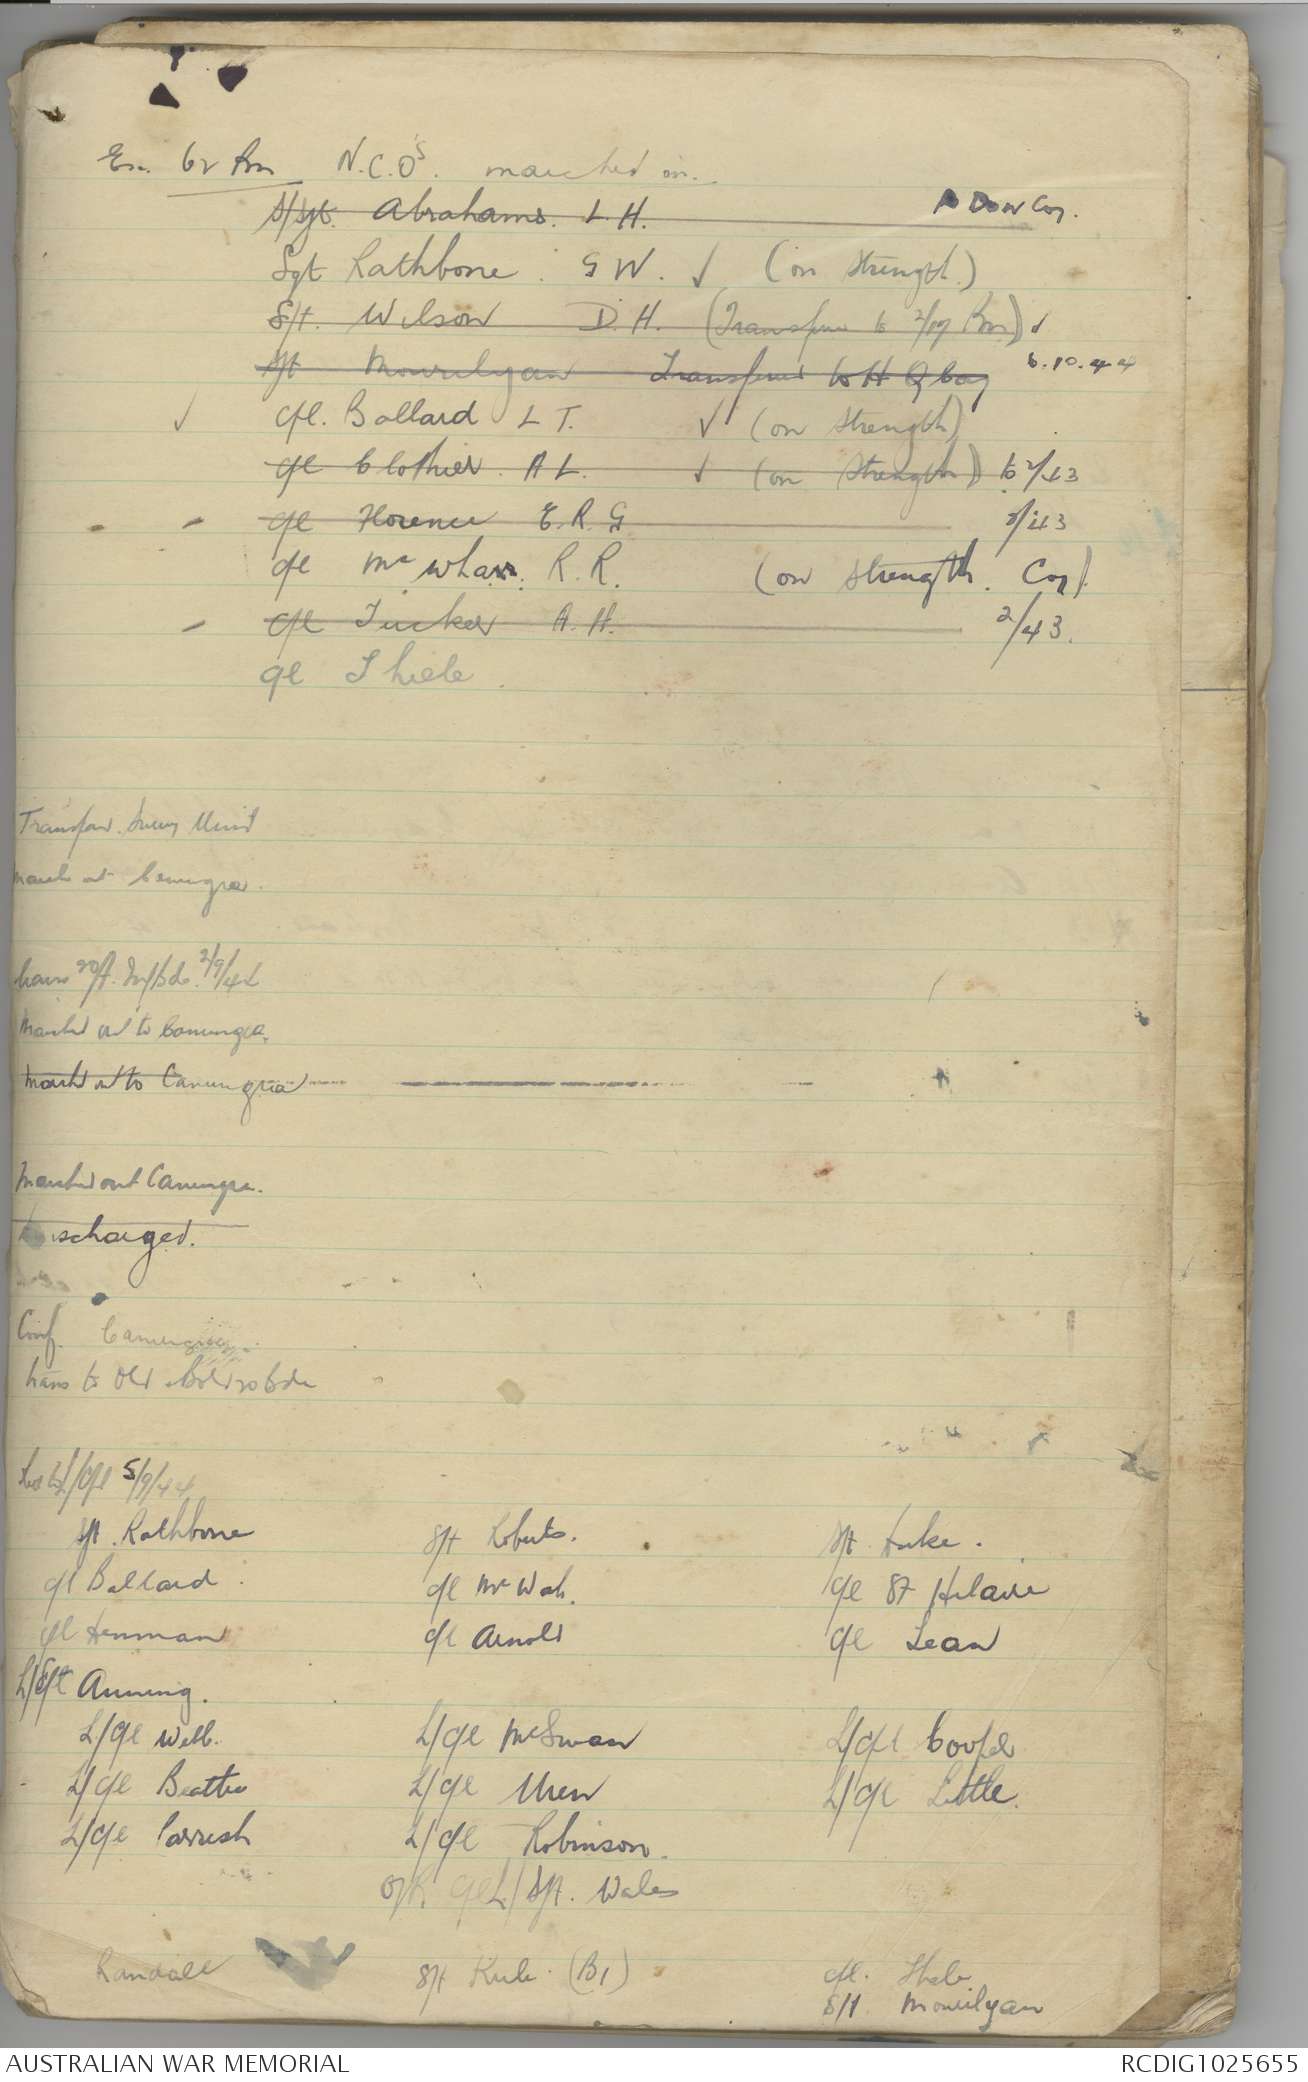 Ex. 62 Bn N.C.O's. marched in.
S/Sgt. Abrahams. L. H. Don Coy.
Sgt Rathbone. G W. ✓ (on strength.)
Sgt. Wilson D. H. (Transferred to 2/17 Bn) ✓
Sgt Mourilyan Transferred to H Q Coy 6.10.44
✓ Cpl. Ballard L T. ✓ (on strength)
Cpl Clothier. A L. ✓ (on strength) to 2/43
Cpl Florence E. R. G 2/43
Cpl McWharr. R. R. (on strength. Coy).
Cpl Tucker A. H. 2/43.
Cpl Thiele.
Transfer. Survey Unit
March out Canungra.
trans 20/A. Inf/Bde. 2/9/44
Marched out to Canungra.
Marched out to Canungra
Marched out Canungra.
Discharged.
Conf. Canungra
trans to Old Bde
L/Cpl 5/9/44
Sgt. Rathbone Sgt Roberts. Sgt. Luke.
Cpl Ballard. Cpl McWah. Cpl St Hilaire
Cpl Henman Cpl Arnold Cpl Lean
L/Sgt Anning.
L/Cpl Webb. L/Cpl McSwan L/Cpl Cooper
L/Cpl Beattie L/Cpl Uren L/Cpl Little.
L/Cpl Parrish L/Cpl Robinson.
Cpl L/Sgt. Wales
Randall Sgt (B1) Cpl. Thiele
Sgt Mourilyan
AUSTRALIAN WAR MEMORIAL RCDIG1025655